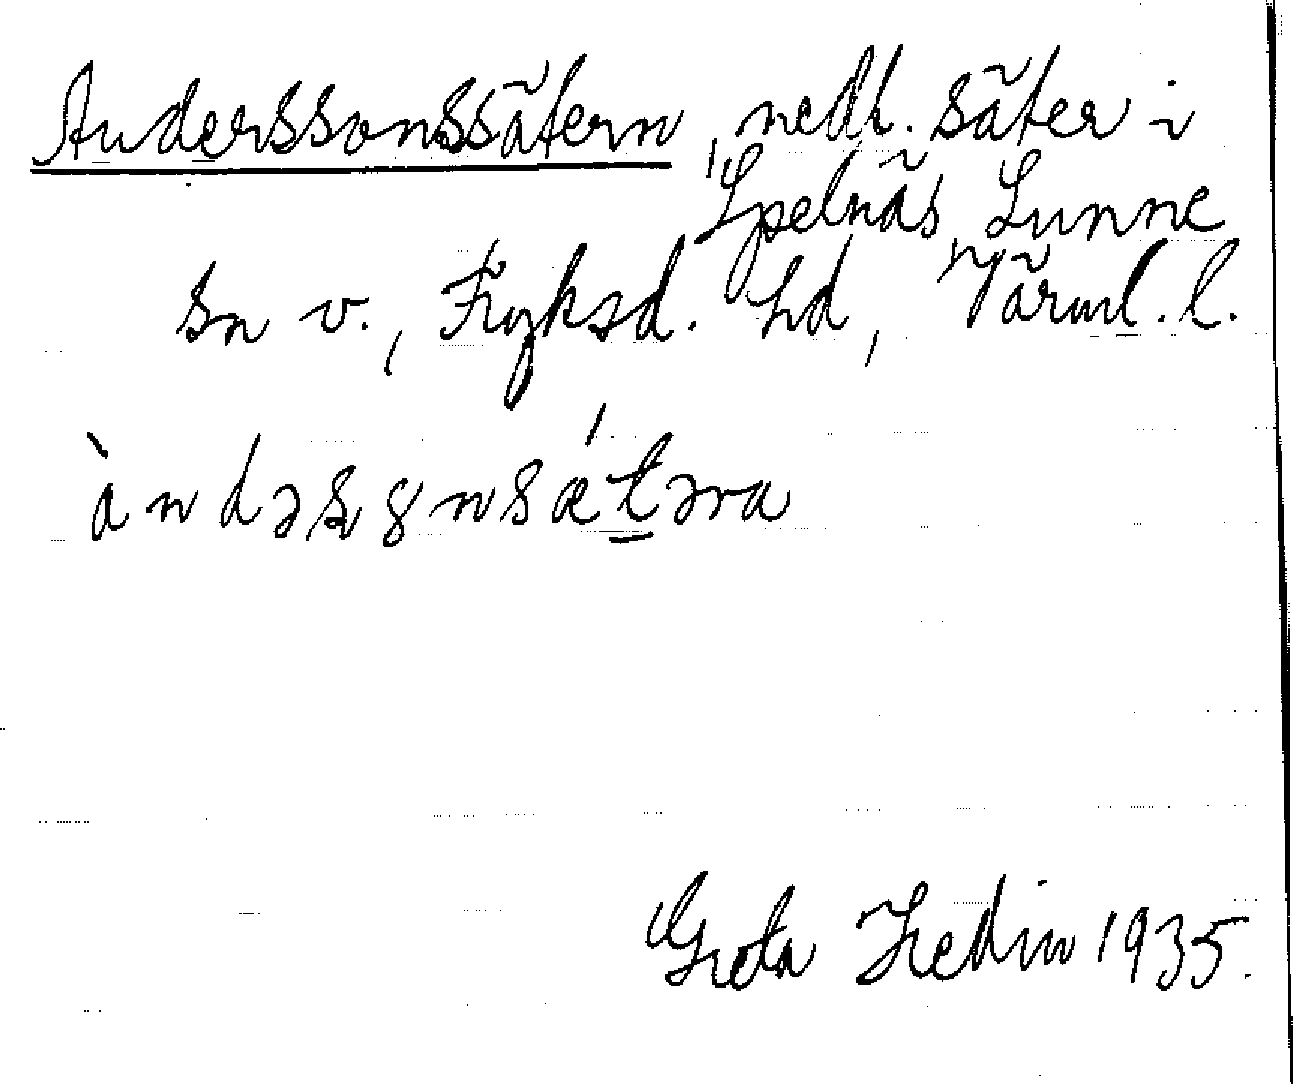 Anderssonssätern, nedl. säter i
Spelnäs, Sunne
sn v., Fryksd. hd, Värml. l.
àndəʂȣnsǽtəra
Greta Hedin 1935.